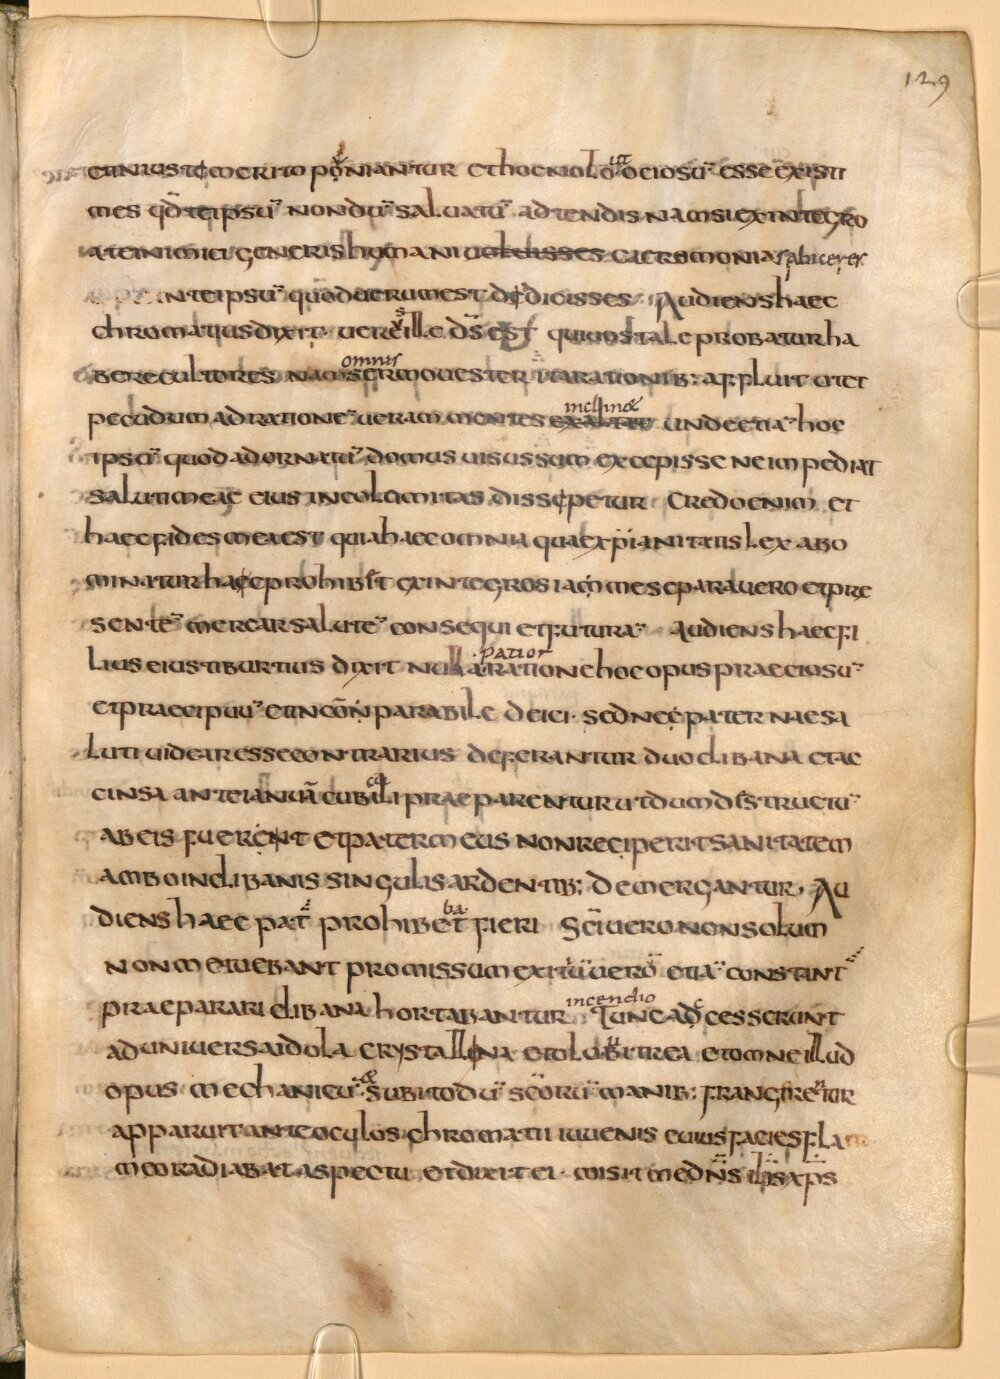 129
et iniuste merito poniantur et hoc nolo ut ociosū esse existi
mes qđ teipsū nondū saluatū adtendis nam si ex integro
ate inimici generis humani uoluisses caeremonias abiceres
in teipsū quod uerum est dedicisses Audiens haec
chromatius dixit uere ille d̄s est qui uos tale probatur ha
bere cultores nam omnis sermo uester ita rationib: affluit ut et
pecudum ad ratione ̄ueram mentes inclinæ unde etiā hoc
ipsū quod ad ornatū domus uisus sum excepisse ne impediat
saluti meae eius incolumitas dissepetur Credo enim et
haec fides mea est quia haec omnia quae xp̄ianitatis lex abo
minatur haec prohibet ex integro si am me separauero et pre
sentē mercar salutē consequi et futurā Audiens haec fi
lius eius tiburtius dixit nulla patior ratione hoc opus praeciosū
et praecipuū et inconparabile deici · sed ne e pater nae sa
luti uidear esse contrarius deferantur duo clibana et ac
cinsa ante ianuā cubiculi praeparentur ut dum destructū
ab eis fuerent et pater meus non reciperit sanitatem
ambo in clibanis singulis ardentib: demergantur · Au
diens haec pat̄ prohibebat fieri Sc̄i uero non solum
non metuebant promissum exitū uero etiā constant̄
praeparari clibana hortabantur incendio Tunc accesserunt
ad uniuersa idola crystallina et olobitrea et omne illud
opus mechanicū · & subito dū sc̄orū manib: frangeretur
apparuit ante oculos chromatii iuuenis cuius facies fla
meo radiabat aspectu et dixit ei · misit me dn̄s ih̄s xp̄s